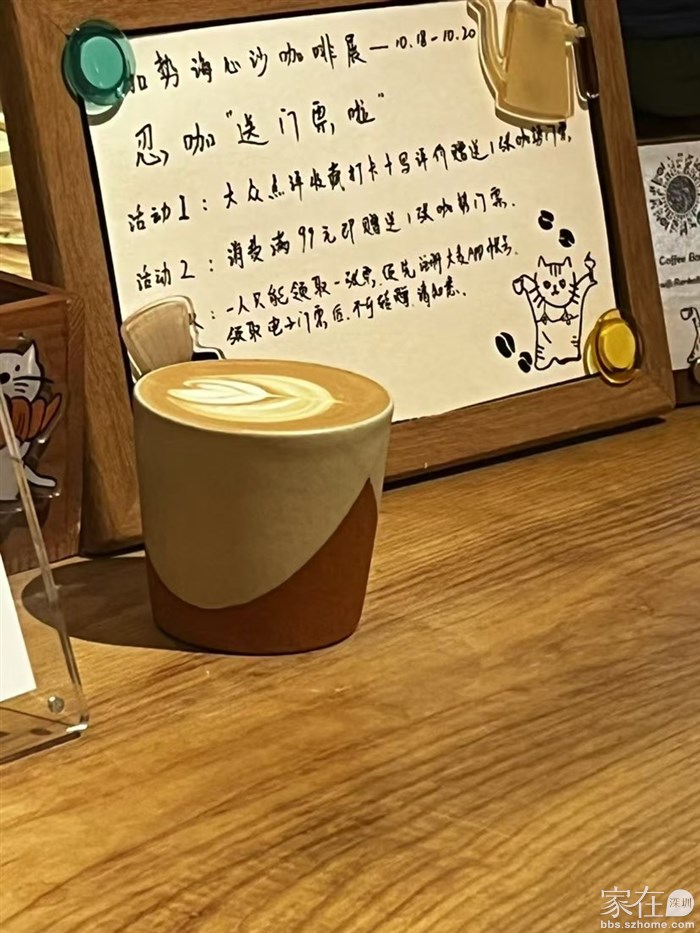 咖势海心沙咖啡展—10.18-10.20
忍咖"送门票啦"
活动1：大众点评收藏打卡+写评价赠送1张咖势门票.
活动2：消费满99元即赠送1张咖势门票.
：一人只能领取一张票,优先注册大麦APP帐号.
领取电子门票后.不可转赠.请知悉.
Coffee Ba
家在深圳
bbs.szhome.com